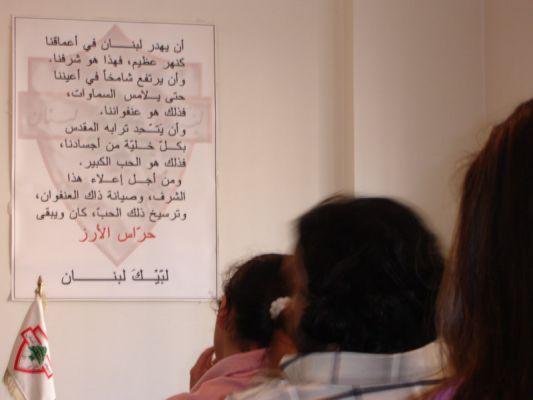 أن يهدر لبنـــان في أعماقنا
كنهر عظيم، فهذا هو شرفنا.
وأن يرتفع شامخاً في أعيننا
حتى يــلامس السماوات،
فذلك هو عنفواننا.
وأن يَتـّحد ترابه المقدس
بكـلّ خليّة من أجسادنا،
فذلك هو الحب الكبير.
ومن أجـل إعـلاء هذا
الشرف، وصيانة ذاك العنفوان،
وترسيخ ذلك الحبّ، كان ويبقى
حرّاس الأرز
لبّيْـكَ لبنـــــان
لبنان